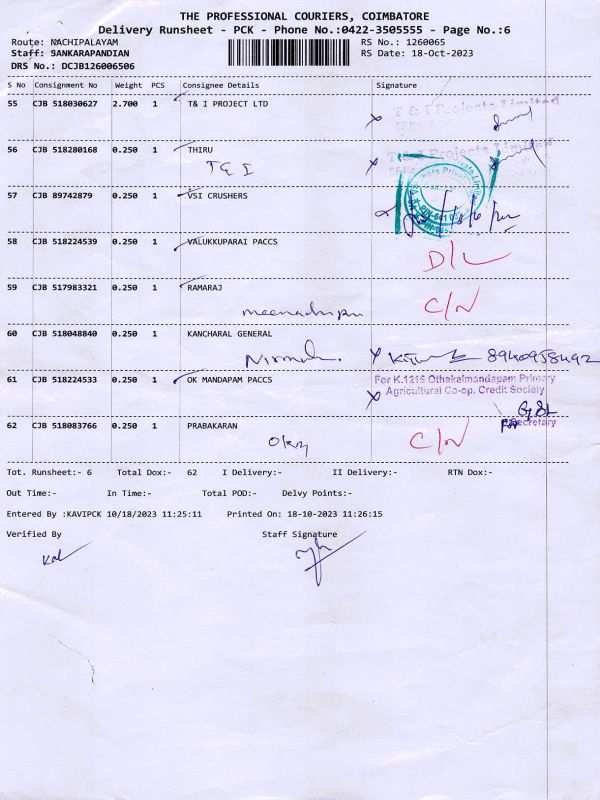 THE PROFESSIONAL COURIERS, COIMBATORE
Delivery Runsheet - PCK - Phone No.:0422-3505555 - Page No.:6
Route: NACHIPALAYAM RS No.: 1260065
Staff: SANKARAPANDIAN RS Date: 18-Oct-2023
DRS No.: DCJB126006506
S No Consignment No Weight PCS Consignee Details Signature
55 CJB 518030627 2.700 1 T& I PROJECT LTD T & I Projects Limited
56 CJB 518280168 0.250 1 THIRU T & I Projects Limited
T & I
57 CJB 89742879 0.250 1 VSI CRUSHERS
58 CJB 518224539 0.250 1 VALUKKUPARAI PACCS
D/L
59 CJB 517983321 0.250 1 RAMARAJ C/N
60 CJB 518048840 0.250 1 KANCHARAL GENERAL
8940958492
61 CJB 518224533 0.250 1 OK MANDAPAM PACCS For K.1215 Othakalmandapam Primary
Agricultural Co-op. Credit Society
Secretary
62 CJB 518083766 0.250 1 PRABAKARAN C/N
Tot. Runsheet:- 6 Total Dox:- 62 I Delivery:- II Delivery:- RTN Dox:-
Out Time:- In Time:- Total POD:- Delvy Points:-
Entered By :KAVIPCK 10/18/2023 11:25:11 Printed On: 18-10-2023 11:26:15
Verified By Staff Signature